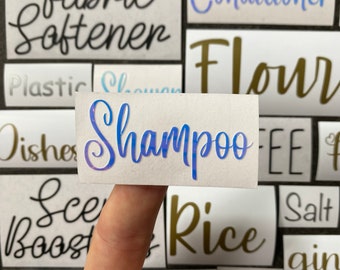 Fabric
Softener
Conditioner
Plastic
Shower
Flour
Shampoo
Dishes
Scent
Boosters
Rice
Salt